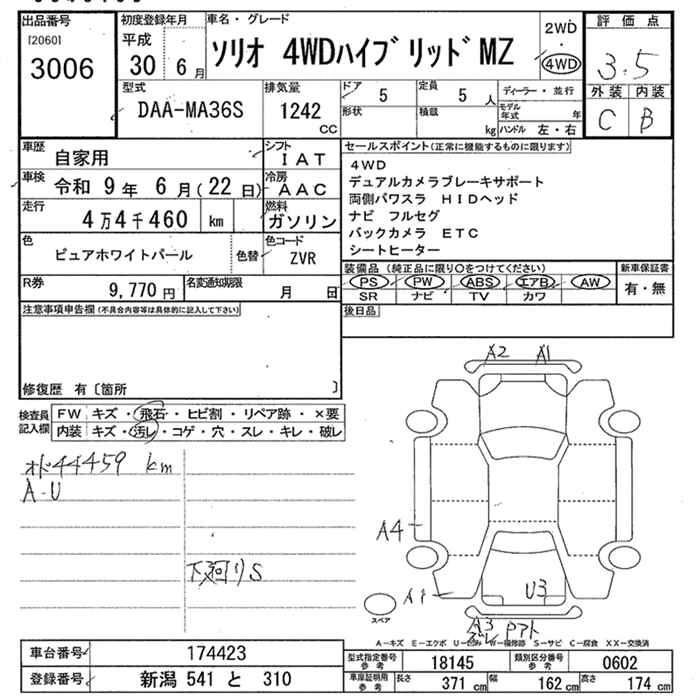 出品番号
[2060]
3006
初度登録年月
平成
30 6月
車名・グレード
ソリオ 4WDハイブリッドMZ
2WD
・
4WD
評価点
3.5
外装 内装
C B
型式
DAA-MA36S
排気量
1242
CC
ドア
5
定員
5 人
形状
積載
kg
ディーラー・並行
モデル年式 年
ハンドル 左・右
車歴
自家用
シフト
IAT
車検
令和 9年 6月(22日)
冷房
AAC
走行
4万4千460 km
燃料
ガソリン
色
ピュアホワイトパール
色替
色コード
ZVR
R券
9,770円
名変通知期限
月 日
セールスポイント(正常に機能するものに限ります)
4WD
デュアルカメラブレーキサポート
両側パワスラ HIDヘッド
ナビ フルセグ
バックカメラ ETC
シートヒーター
装備品(純正品に限り〇をつけてください)
PS PW ABS エアB AW
SR ナビ TV カワ
新車保証書
有・無
後日品
注意事項申告欄(不具合内容等は具体的に記入して下さい)
修復歴 有〔箇所 〕
検査員
記入欄
FW キズ・飛石・ヒビ割・リペア跡・×要
内装 キズ・汚レ・コゲ・穴・スレ・キレ・破レ
オド44459 km
A-U
下廻りS
A2 A1
A4
A1
U3
A3
スペア
A-キズ E-エクボ U-凹み W-補修跡 S-サビ C-腐食 XX-交換済
車台番号 174423
登録番号 新潟 541 と 310
型式指定番号
参考
18145
類別区分番号
参考
0602
車庫証明用
参考
長さ 371cm 幅 162cm 高さ 174cm